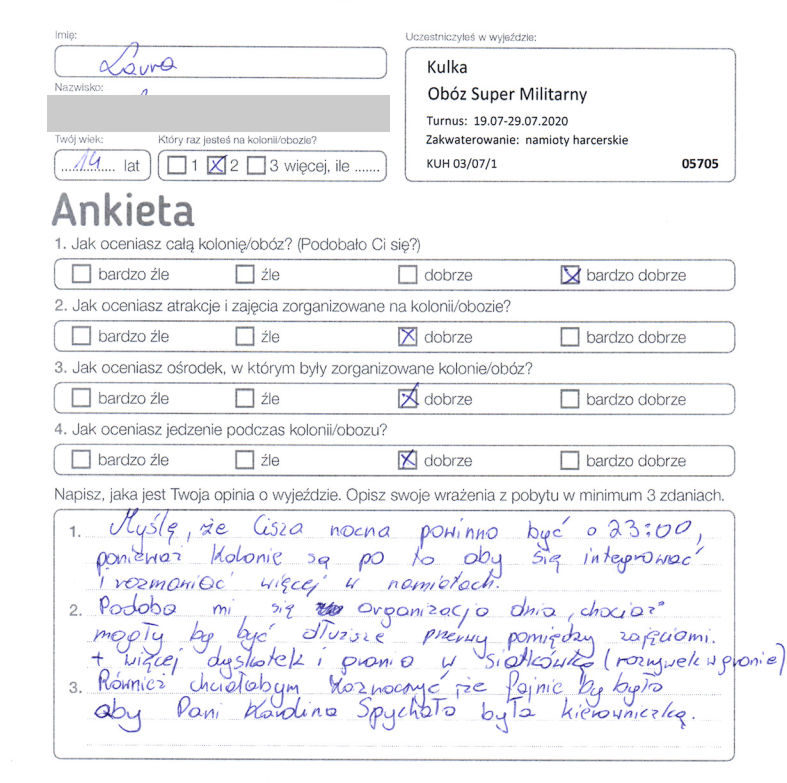 Imię:
Laura
Uczestniczyłeś w wyjeździe:
Nazwisko:
Kulka
Obóz Super Militarny
Turnus: 19.07-29.07.2020
Zakwaterowanie: namioty harcerskie
KUH 03/07/1 05705
Twój wiek: Który raz jesteś na kolonii/obozie?
14 lat 1 2 3 więcej, ile .......
Ankieta
1. Jak oceniasz całą kolonię/obóz? (Podobało Ci się?)
bardzo źle źle dobrze bardzo dobrze
2. Jak oceniasz atrakcje i zajęcia zorganizowane na kolonii/obozie?
bardzo źle źle dobrze bardzo dobrze
3. Jak oceniasz ośrodek, w którym były zorganizowane kolonie/obóz?
bardzo źle źle dobrze bardzo dobrze
4. Jak oceniasz jedzenie podczas kolonii/obozu?
bardzo źle źle dobrze bardzo dobrze
Napisz, jaka jest Twoja opinia o wyjeździe. Opisz swoje wrażenia z pobytu w minimum 3 zdaniach.
1. Myślę, że Cisza nocna powinno być o 23:00,
ponieważ kolonie są po to aby się integrować
i rozmawiać więcej w namiotach.
2. Podoba mi się organizacja dnia, chociaż
mogły by być dłuższe przerwy pomiędzy zajęciami.
+ więcej dyskotek i grania w siatkówkę (rozgrywek w gronie)
3. Również chciałabym zaznaczyć, że fajnie by było
aby Pani Karolina Spychała była kierowniczką.